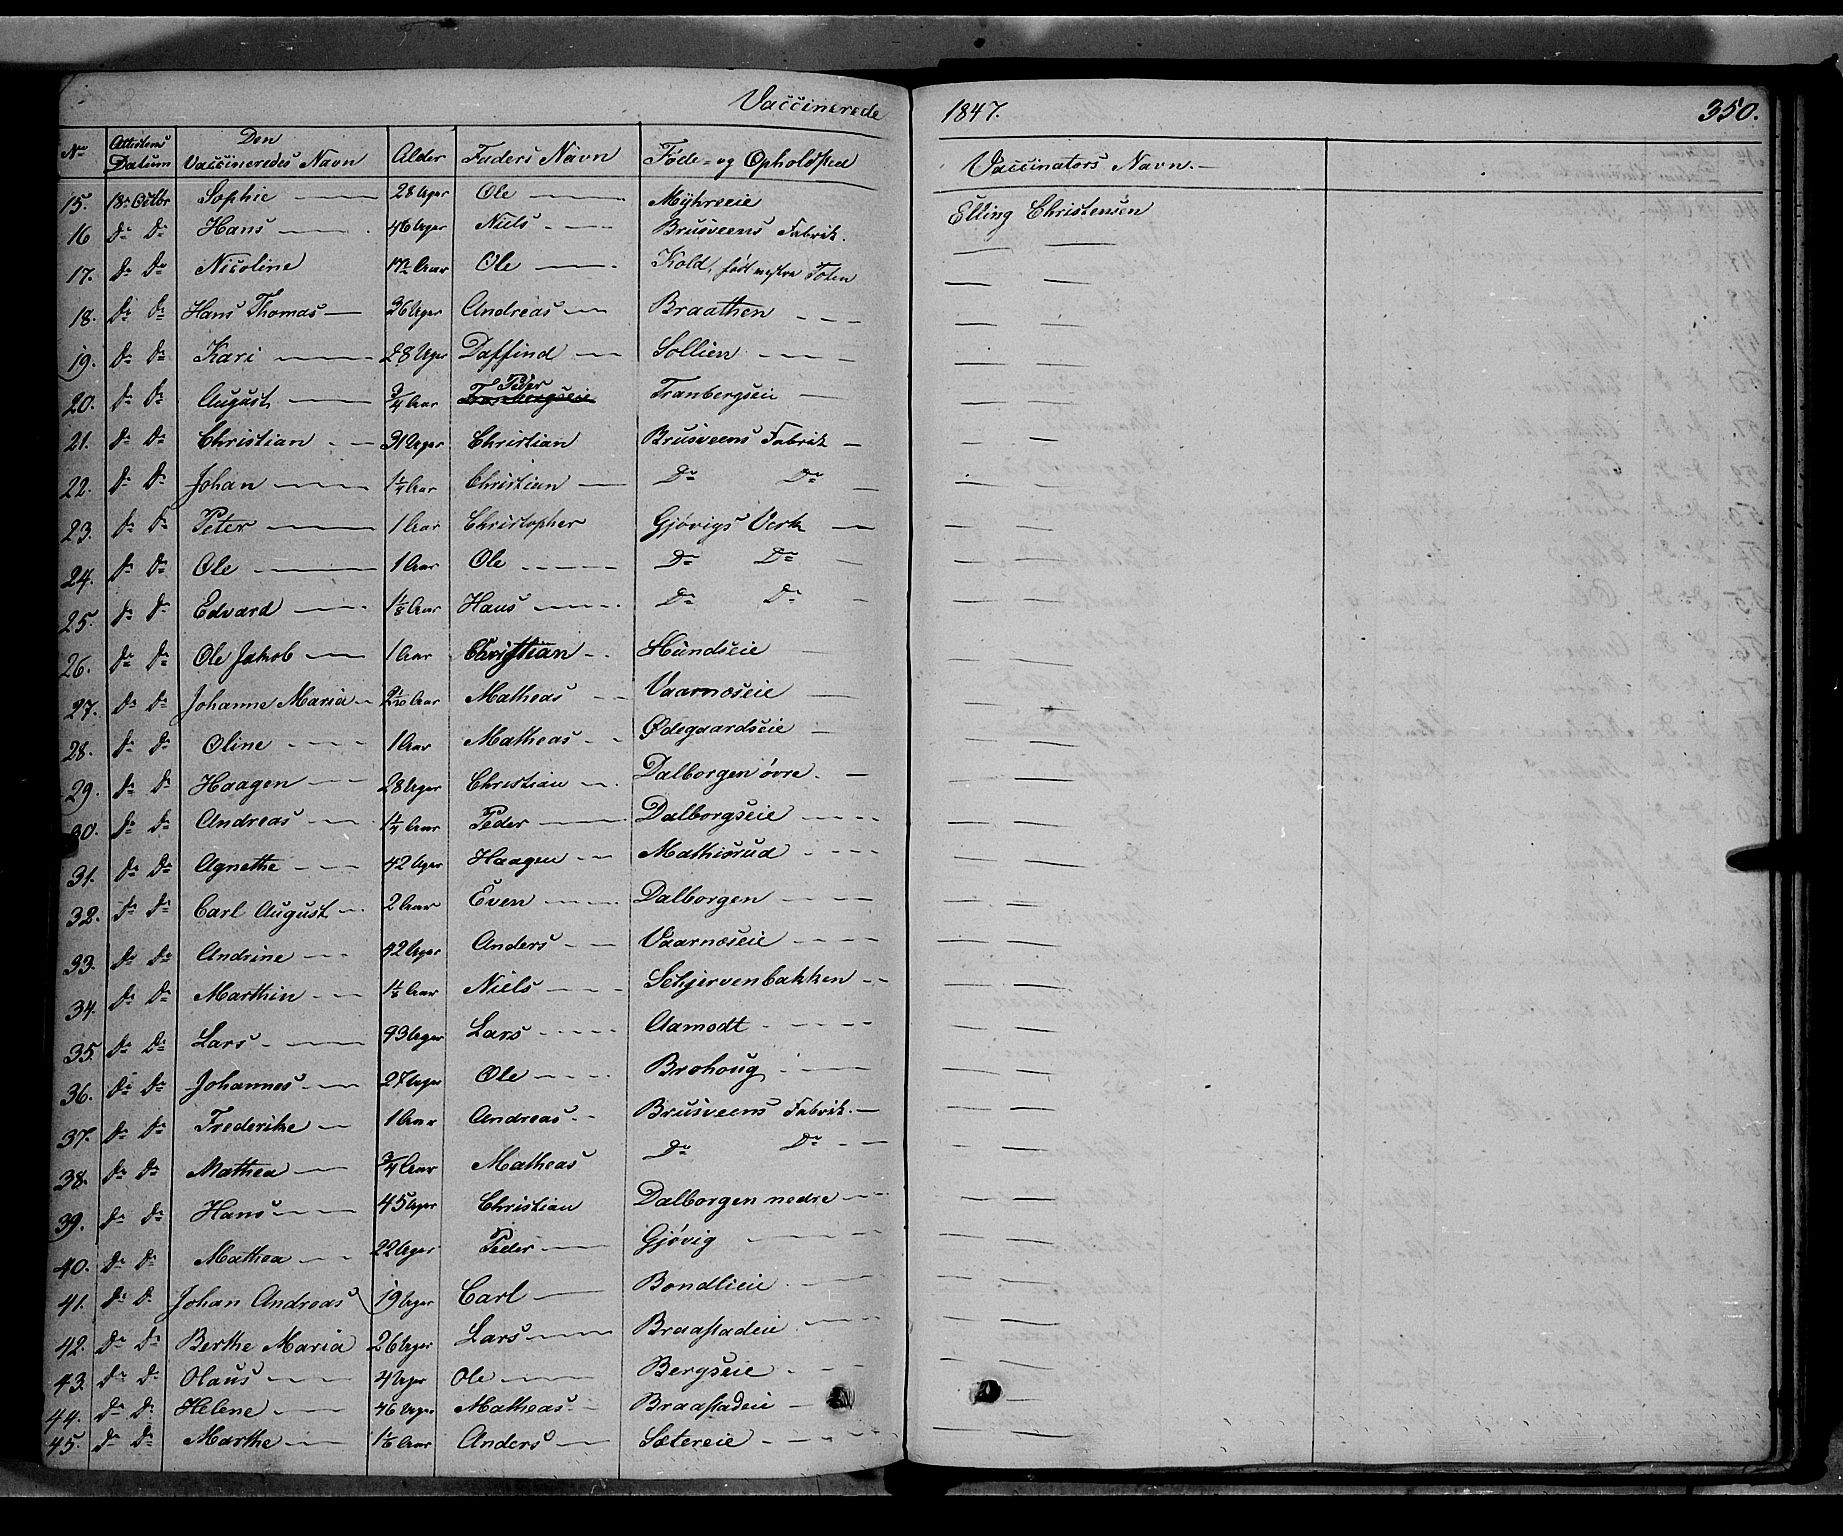 Vaccinerede 1847. 350.
No Attestens Datum Den Vaccineredes Navn Alder Faders Navn Føde- og Opholdsted Vaccinators Navn.
15. 18 Octbr Sophie 28 Uger Ole Myhreeie Elling Christensen
16 Do Do Hans 46 Uger Niels Brusveens Fabrik.
17. Do Do Nicoline Aar Ole Kold, født vestre Toten
18. Do Do Hans Thomas 36 Uger Andreas Braathen
19. Do Do Kari 28 Uger Daffind Sollien
20. Do Do August 3/4 Aar Peder Tranbergseie
21. Do Do Christian 31 Uger Christian Brusveens Fabrik
22. Do Do Johan 1 1/4 Aar Christian Do Do
23. Do Do Peter 1 Aar Christopher Gjøvigs Verk
24. Do Do Ole 1 Aar Ole Do Do
25. Do Do Edvard 1 1/8 Aar Hans Do Do
26. Do Do Ole Jakob 1 Aar Christian Hundseie
27. Do Do Johanne Maria 2 1/10 Aar Matheas Vaarnæseie
28. Do Do Oline 1 Aar Matheas Ødegaardseie
29. Do Do Haagen 28 Uger Christian Dalborgen øvre.
30. Do Do Andreas 1 1/4 Aar Peder Dalborgseie
31. Do Do Agnethe 42 Uger Haagen Mathisrud
32. Do Do Carl August 2 Aar Even Dalborgen
33. Do Do Andrine 42 Uger Anders Vaarnæseie
34. Do Do Marthin 1 1/8 Aar Niels Schjervenbakken
35. Do Do Lars 93 Uger Lars Aamodt
36. Do Do Johannes 27 Uger Ole Brohoug
37. Do Do Frederikke 1 Aar Andreas Brusveens Fabrik.
38. Do Do Mathea 3/4 Aar Matheas Do Do
39. Do Do Hans 45 Uger Christian Dalborgen nedre
40. Do Do Mathea 22 Uger Peder Gjøvig
41. Do Do Johan Andreas 19 Uger Carl Bondlieie
42. Do Do Berthe Maria 26 Uger Lars Braastadeie
43. Do Do Olaus Uger Ole Bergseie
44. Do Do Helene 46 Uger Matheas Braastadeie
45. Do Do Marthe 1 1/6 Aar Anders Sætereie